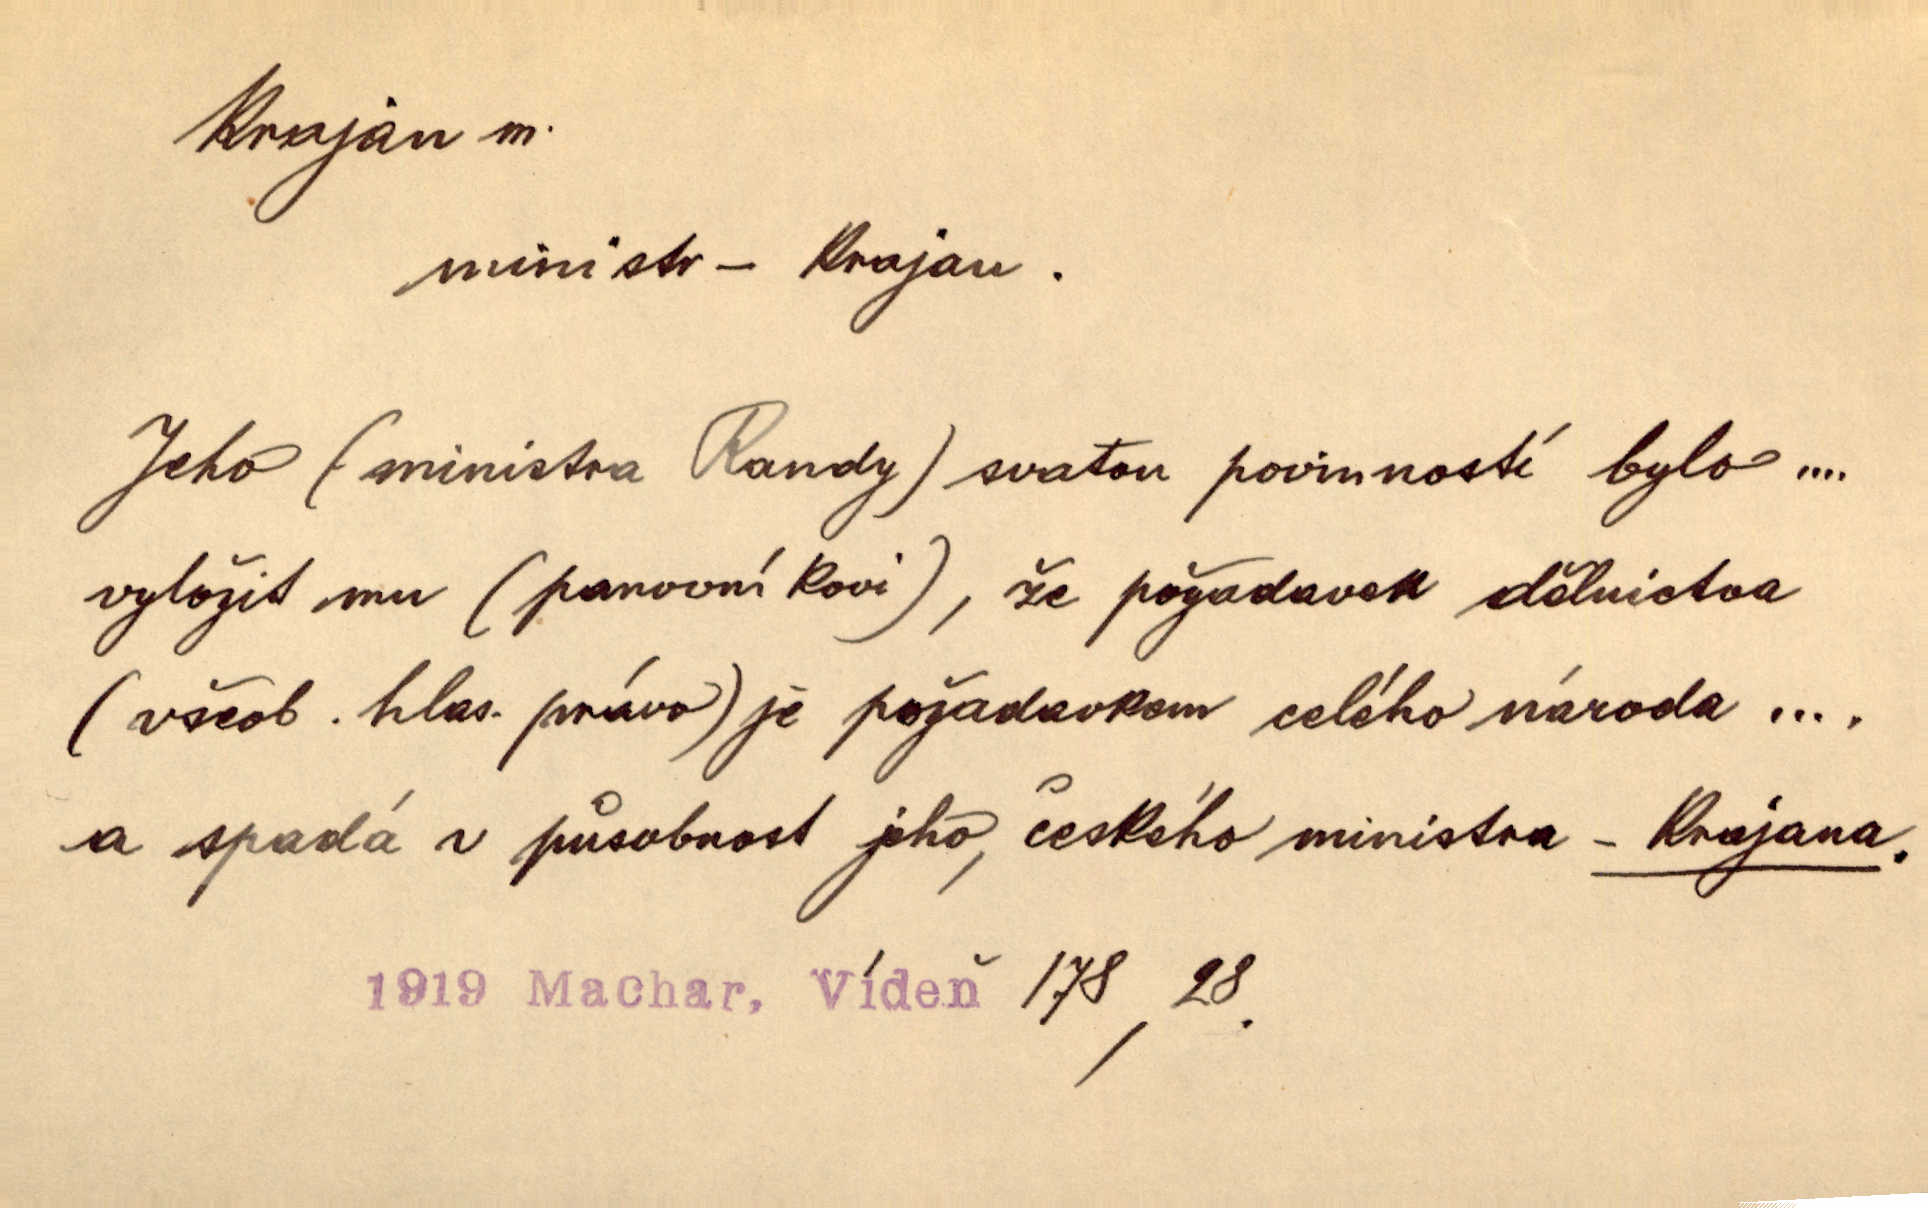 Krajan m.
ministr – Krajan.
Jeho (ministra Randy) svatou povinností bylo ....
vyložit mu (panovníkovi), že požadavek dělnictva
(všeob. hlas. právo) je požadavkem celého národa ....
a spadá v působnost jeho, českého ministra – Krajana.
1919 Machar, Vídeň 178, 28.